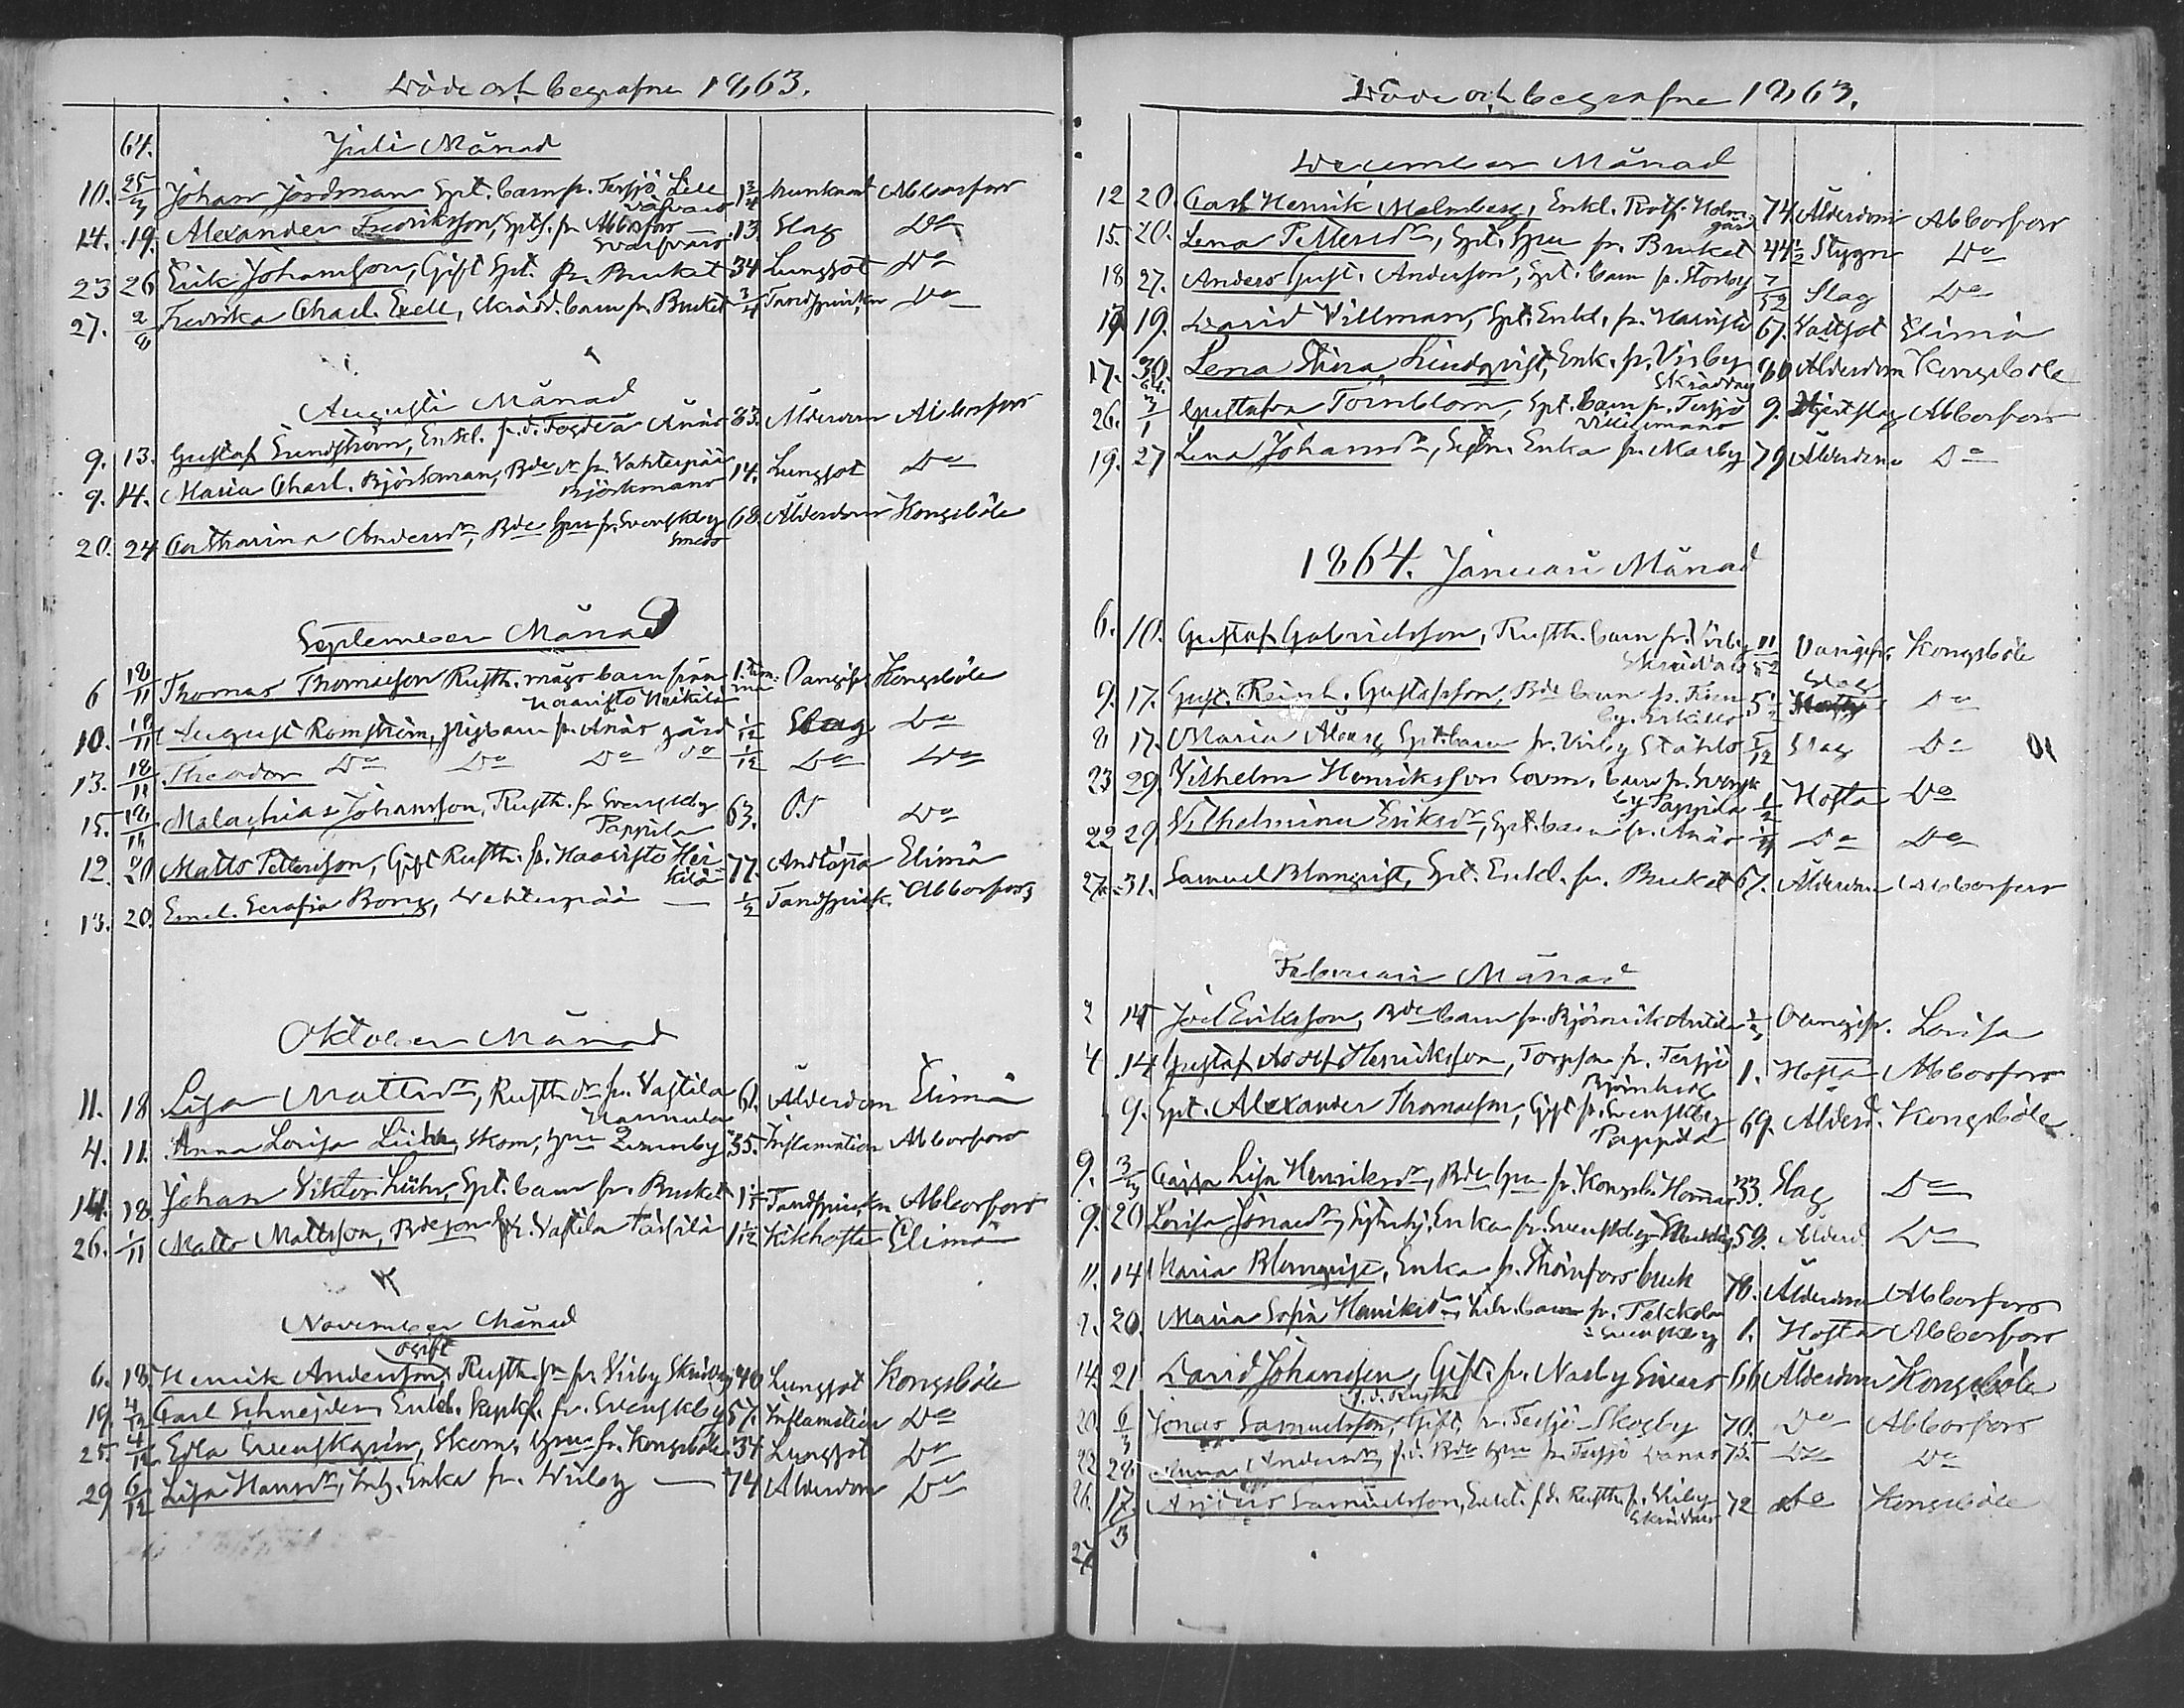 Döde och begrafne 1863.
64.
Juli Månad
10. 25/3 Johan Jordman Spt. barn fr. Tesjö Lill 1 3/4 Abborfors
14. 19. Alexander Fredriksson, fr. Abborfors 13. Slag Do
23 26 Erik Johansson, Gift Spt. fr. Bruket 34 Lungsot Do
27. 2/8 Fredrika Charl. Ecell, Skrädd. barn fr. Bruket 3/4 Tandsprickn Do
Augusti Månad
9. 13. Gustaf Sundström, Enkl. f.d. Fogde a Anäs 83. Ålderdom Abborfors
9. 14. Maria Charl. Björkman, Bde dr fr. Vahterpää 14. Lungsot Do
Björkmans
20. 24 Catharina Andersdr, Bde hru fr. Svenskby 68. Ålderdom Kongsböle
Smeds
September Månad
6 18/11 Thomas Thomasson Rusth. mågs barn från 1. tim- Oangifv. Kongsböle
Haavisto Heikilä me
10. 18/11 August Romström, pigbarn fr. Anäs gård 1/12 Slag Do
13. 18/11 Theodor Do Do Do Do 1/12 Do Do
15. 18/11 Malachias Johansson, Rusth. fr Svenskby 63. Do
Pappila
12. 20 Matts Pettersson, Gift Rusth. fr. Haavisto Hei 77. Andtäppa Elimä
kilä
13. 20. Emel. Serafia Borg, Vehterpää — 1/2 Tandsprick. Abborfors
Oktober Månad
11. 18 Lisa Mattsdr, Rusth. dr fr. Vastila 61. Ålderdom Elimä
Hannula
4. 11. Anna Lovisa Lühr, Skom. hru 35. Inflamation Abborfors
14. 18. Johan Viktor Lühr, Spt. barn fr. Bruket Tandsprickn Abborfors
26. 1/11 Matts Mattsson, Bde son fr. Vastila 1 1/12 Kikhosta Elimä
November Månad
Gift
6. 18. Henrik Andersson, Rusth. fr Virby Skridars 40 Lungsot Kongsböle
19. 4/12 Carl Schnejder, Enkl. fr. Svenskby 57. Inflamation Do
25. 4/12 Edla Svenskgrén, Skom. hru fr. Kongsböle 34 Lungsot Do
29 6/12 Lisa Hansdr, Enka fr. Virby — 74 Ålderdom Do
Döde och begrafne 1863.
December Månad
12 20. Carl Henrik Malmberg, Enkl. Holm 74 Ålderdom Abborfors
gård
15. 20. Lena Pettersdr, Spt. hru fr. Bruket 44 1/2 Stygn Do
18 27. Anders Gust. Anderson, Spt. barn fr. Storby 7/52 Slag Do
19. David Villman, Spt. Enkl. fr. Haavisto 67. Vattsot Elimä
17. 30. Lena Stina Lindqvist, Enk. fr. Virby 80 Ålderdom Kongsböle
26. 3/1 64. Gustafva Törnblom, Spt. barn fr. Tesjö 9. Hjertslag Abborfors
19. 27 Lena Johansdr, Enka fr. Marby 79 Ålderdom Do
1864. Januari Månad
6. 10. Gustaf Gabrielsson, Rusth. barn fr. Virby 11/52 Oangifv. Kongsböle
Skridars
9. 17. Gust. Reinh. Gustafsson, Bde barn fr. 5 1/2 Slag Do
by. Erkilles
8 17. Maria Åberg Spt. barn fr. Virby Ståhls 5/12 Slag Do
23 29. Vilhelm Henriksson barn fr. Svensk
by Pappila 1/2 Hosta Do
22 29. Vilhelmina Eriksdr, Spt. barn fr. Anäs Do Do
27. 31. Samuel Blomqvist, Spt. Enkl. fr. Bruket 67. Ålderdom Abborfors
Februari Månad
2 14 Joel Eriksson, Bde barn fr. Björnvik Antila 1/2 Oangifv. Lovisa
4 14 Gustaf Adolf Henriksson, Torpson fr. Tesjö 1. Hosta Abborfors
9. Spt. Alexander Thomasson, Gift fr. Svenskby 69. Ålderd. Kongsböle.
Pappila
9. 3/3 Cajsa Lisa Henriksdr, Bde hru fr. Kongsb. Hommas 33. Slag Do
9. 20 Lovisa Jonasdr, Enka fr. Svenskby 59. Ålderd. Do
11. 14 Maria Blomqvist, Enka fr. Strömfors bruk 78. Ålderdom Abborfors
7. 20. Maria Sofia Henriksdr, barn fr. Pakkola 1. Hosta Abborfors
i Svenskby
14. 21 David Johansson, Gift. fr. Marby Sivars 66 Ålderdom Kongsböle
f.d. Rusth.
20. 6/3 Jonas Samuelsson, Gift. fr. Tesjö Skogby 70. Do Abborfors
22 28 Anna Andersdr, f.d. Bde hru fr Tesjö 75. Do Do
26. 17/3 Anders Samuelsson, Enkl. f.d. Rusth. fr. Virby 72 Do Kongsböle
Skridars
27